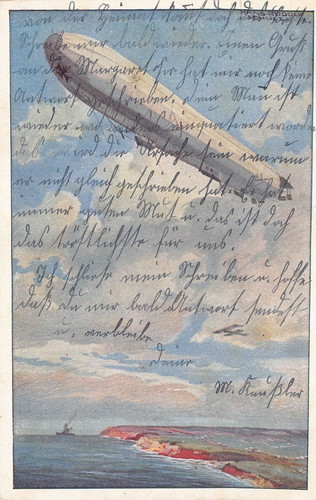 von der Heimat
Schreibe mir bald wieder. Einen Gruß
an der Margaret. Ihr hat mir noch keine
Antwort geschrieben, dein Man ist
wieder wo worden
das wird die Ursache sein warum
er nicht gleich geschrieben hat. Er hat
immer guten Mut u. das ist doch
das tröstlichste für uns.
Ich schließe mein Schreiben u. hoffe
daß du mir bald Antwort sendest
u. verbleibe
deine
M. Kaußler